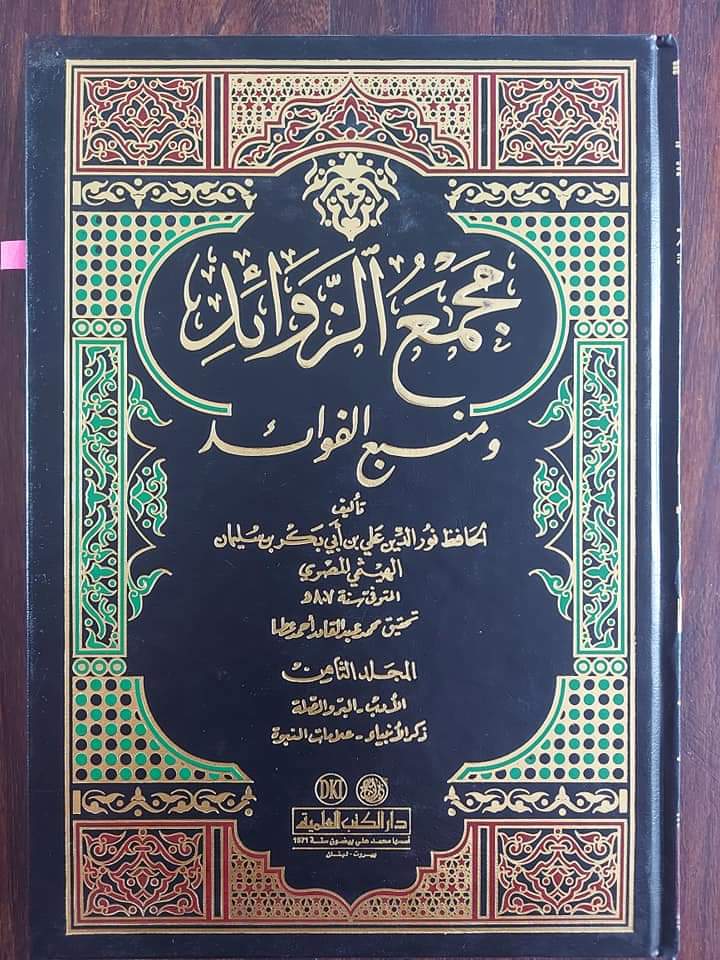 مَجْمَعُ الزَّوَائِدِ
ومنبع الفوائد
تأليف
الحَافظ نُور الدّين عَلي بن أبي بَكر بن سُليمان
الهيثمي المصري
المتوفى سنة ٨٠٧هـ
تحقيق محمد عبد القادر أحمد عطا
المجلد الثامن
الأدب - البر والصلة
ذكر الأنبياء - علامات النبوة
DKI
دار الكتب العلمية
أسسها محمد علي بيضون سنة 1971
بيروت - لبنان